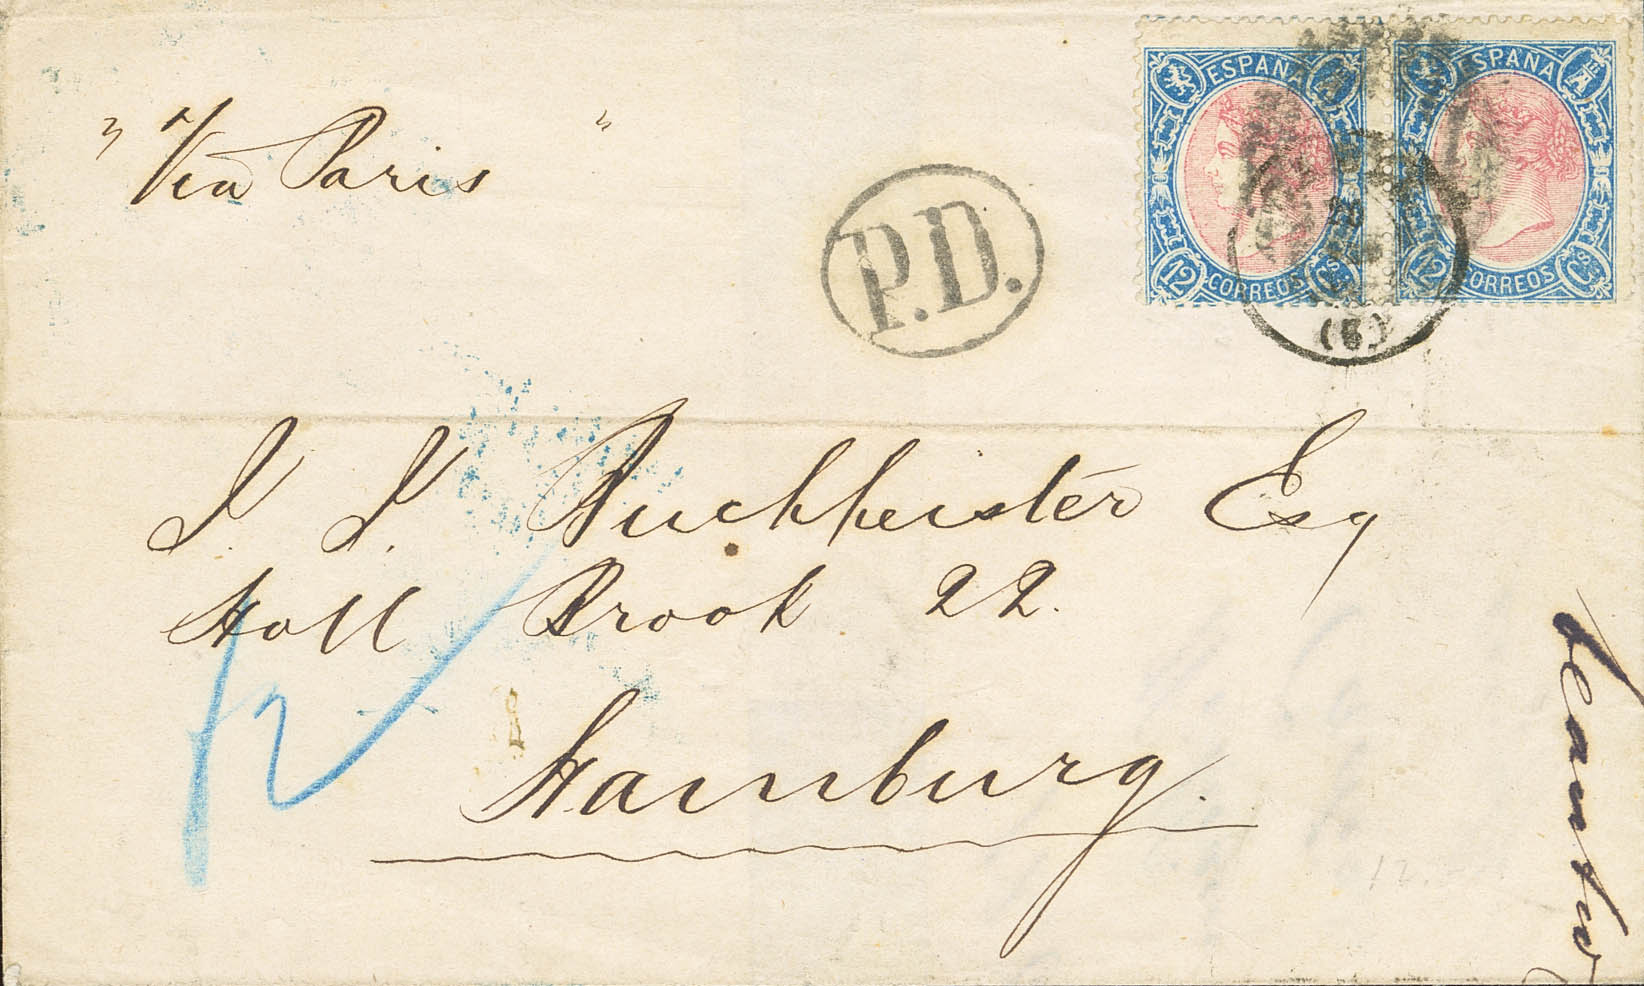 " Via Paris "
P.D.
ESPAÑA
12 CORREOS Cs
ESPAÑA
12 CORREOS Cs
(5)
J. J. Buchheister Esq
Holl Brook 22.
12
Hamburg.